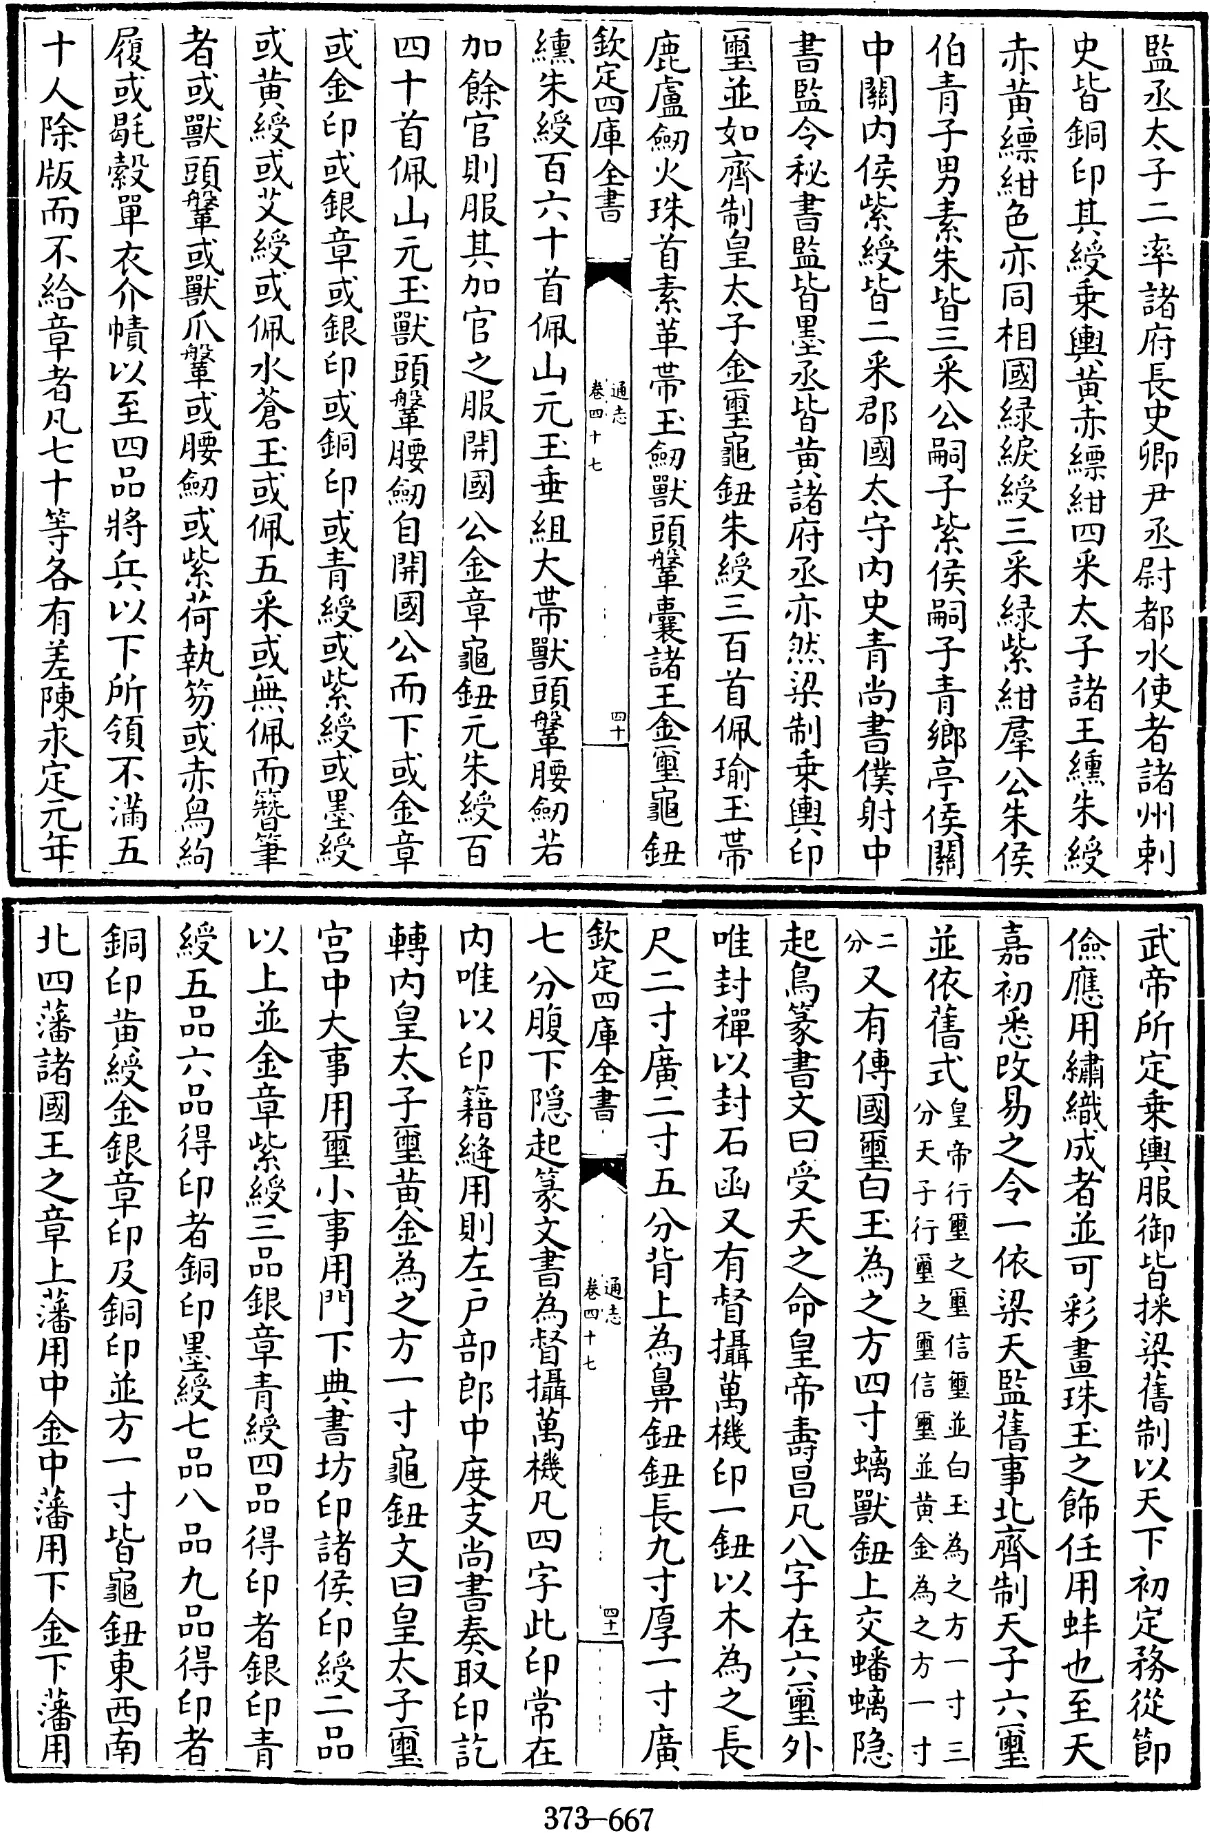 監丞太子二率諸府長史卿尹丞尉都水使者諸州刺
史皆銅印其綬乗輿黄赤縹紺四采太子諸王纁朱綬
赤黄縹紺色亦同相國緑綟綬三采緑紫紺羣公朱侯
伯青子男素朱皆三采公嗣子紫侯嗣子青鄉亭侯關
中關内侯紫綬皆二采郡國太守内史青尚書僕射中
書監令秘書監皆墨丞皆黄諸府丞亦然梁制乗輿印
璽並如齊制皇太子金璽龜鈕朱綬三百首佩瑜玉帯
鹿盧劒火珠首素革帯玉劒獸頭鞶囊諸王金璽龜鈕
欽定四庫全書
通志
卷四十七
四十
纁朱綬百六十首佩山元玉垂組大帯獸頭鞶腰劒若
加餘官則服其加官之服開國公金章龜鈕元朱綬百
四十首佩山元玉獸頭鞶腰劒自開國公而下或金章
或金印或銀章或銀印或銅印或青綬或紫綬或墨綬
或黄綬或艾綬或佩水蒼玉或佩五采或無佩而簪筆
者或獸頭鞶或獸爪鞶或腰劒或紫荷執笏或赤舄絇
履或毼縠單衣介幘以至四品將兵以下所領不滿五
十人除版而不給章者凡七十等各有差陳永定元年
武帝所定乗輿服御皆採梁舊制以天下初定務從節
儉應用繡織成者並可彩畫珠玉之飾任用蚌也至天
嘉初悉改易之令一依梁天監舊事北齊制天子六璽
並依舊式皇帝行璽之璽信璽並白玉為之方一寸三
分天子行璽之璽信璽並黄金為之方一寸
二分又有傳國璽白玉為之方四寸螭獸鈕上交蟠螭隐
起鳥篆書文曰受天之命皇帝壽昌凡八字在六璽外
唯封禪以封石函又有督攝萬機印一鈕以木為之長
尺二寸廣二寸五分背上為鼻鈕鈕長九寸厚一寸廣
欽定四庫全書
通志
卷四十七
四十一
七分腹下隐起篆文書為督攝萬機凡四字此印常在
内唯以印籍縫用則左戸部郎中度支尚書奏取印訖
轉内皇太子璽黄金為之方一寸龜鈕文曰皇太子璽
宫中大事用璽小事用門下典書坊印諸侯印綬二品
以上並金章紫綬三品銀章青綬四品得印者銀印青
綬五品六品得印者銅印墨綬七品八品九品得印者
銅印黄綬金銀章印及銅印並方一寸皆龜鈕東西南
北四藩諸國王之章上藩用中金中藩用下金下藩用
373-667